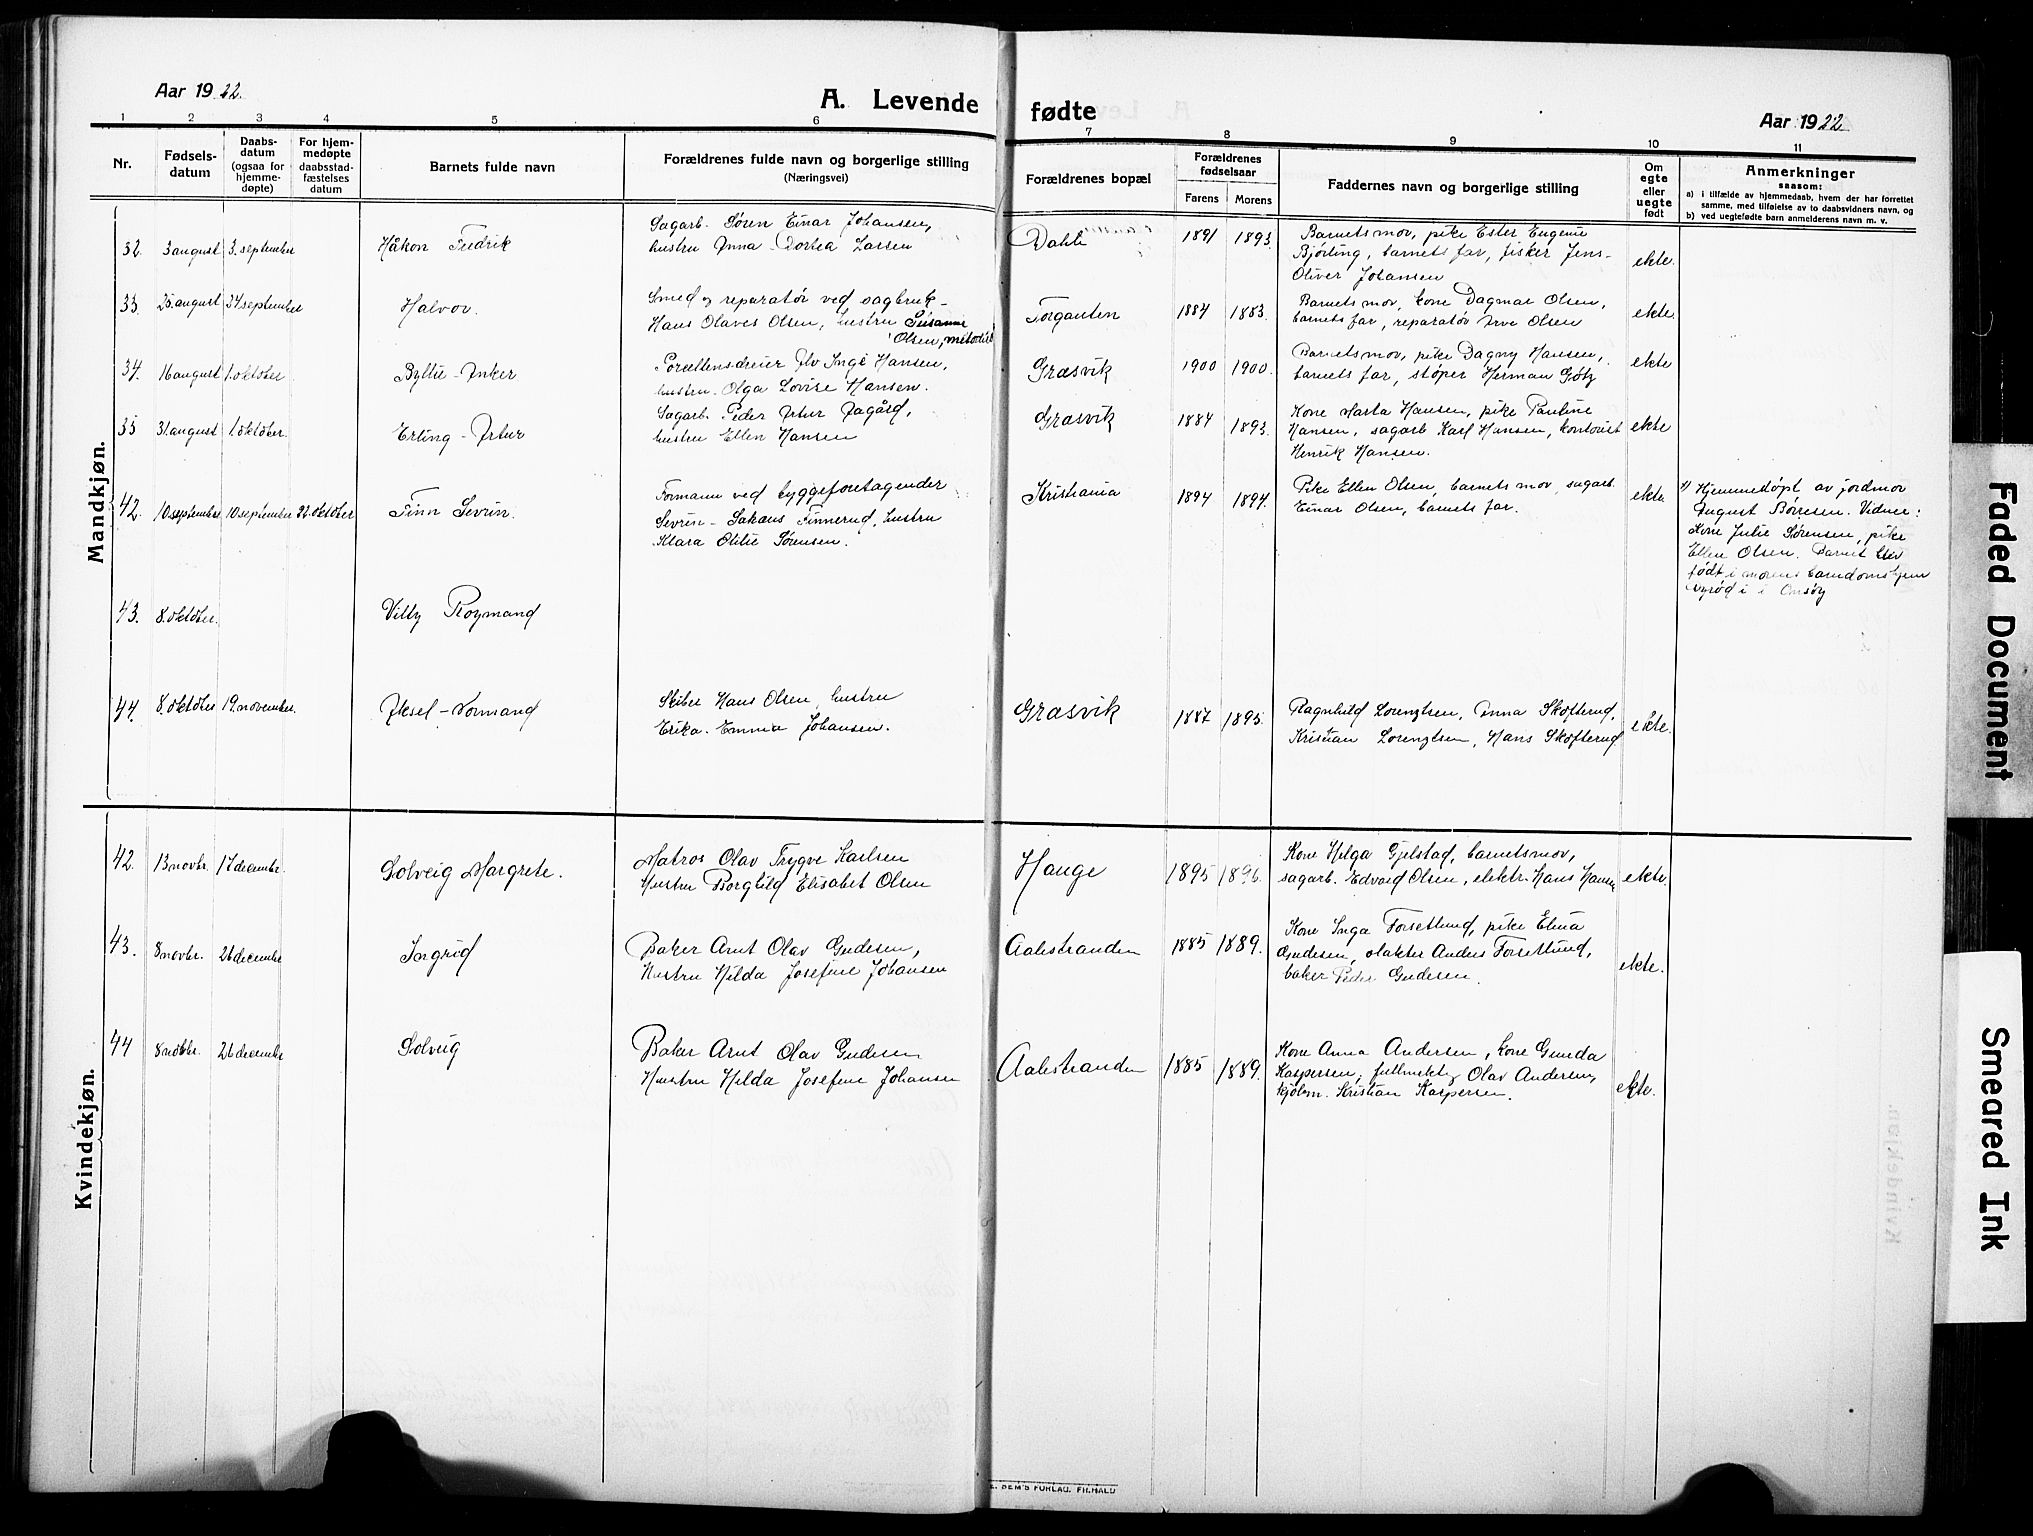 Aar 1922.
A. Levende fødte
Aar 1922
1 2 3 4 5 6 7 8 9 10 11
Nr.
Fødsels-
datum
Daabs-
datum
(ogsaa for
hjemme-
døpte)
For hjem-
medøpte
daabsstad-
fæstelses
datum
Barnets fulde navn
Forældrenes fulde navn og borgerlige stilling
(Næringsvei)
Forældrenes bopæl
Forældrenes
fødselsaar
Farens Morens
Faddernes navn og borgerlige stilling
Om
egte
eller
uegte
født
Anmerkninger
saasom:
a) i tilfælde av hjemmedaab, hvem der har forrettet
samme, med tilføielse av to daabsvidners navn, og
b) ved uegtefødte barn anmelderens navn m. v.
Mandkjøn.
32. 3 august 3. september Håkon Fredrik
Sagarb. Søren Einar Johansen,
hustru Anna Dortea Larsen
Dahle 1891 1893.
Barnets mor, pike Ester Eugenie
Bjørling, barnets far, fisker Jens-
Oliver Johansen
ekte.
33. 25. august september Halvor.
Smed og reparatør ved sagbruk-
Hans Olaves Olsen, hustru Susanne
Olsen, metodist
Torganten 1884 1883.
Barnets mor, kone Dagmar Olsen,
barnets far, reparatør Arve Olsen
ekte.
34. 16 august 1. oktober
Porcellensdreier Alv Inge Hansen,
hustru Olga Lovise Hansen.
Græsvik 1900 1900.
Barnets mor, pike Dagny Hansen,
barnets far, støper Herman Gøtz
ekte
35 31. august 1. oktober. Erling-Artur
Sagarb. Peder Artur Aagård,
hustru Ellen Hansen
Græsvik 1884 1893.
Kone Marta Hansen, pike Pauline
Hansen, sagarb Karl Hansen, kontorist
Henrik Hansen.
ekte
42. 10. september 10 september 22. oktober Finn Sevrin.
Formann ved byggeforetagender
Sevrin- Sakaus Finnerud, hustru
Klara Otilie Sørensen.
Kristiania 1894 1894.
Pike Ellen Olsen, barnets mor, sagarb.
Einar Olsen, barnets far.
ekte
Hjemmedøpt av jordmor
August Børresen. Vidner:
Kone Julie Sørensen, pike
Ellen Olsen. Barnet blev
født i morens barndomshjem
i Onsøy
43. 8. oktober. Villy Roymand
44. 8. oktober 19. november. Aksel-Normand
Skiber Hans Olsen, hustru
Erika. Emma Johansen.
Græsvik 1887 1895.
Ragnhild Lorentzen, Anna Skofterud,
Kristian Lorentzen, Hans Skofterud
ekte.
Kvindekjøn.
42. 13 novbr. 17 decembr. Solveig Margrete.
Matros Olav Trygve Karlsen
Hustru Borghild Elisabet Olsen
Hauge 1895 1896.
Kone Helga Gjelstad, barnets mor,
sagarb. Edvard Olsen, elektr. Hans Hansen
ekte.
43. 8 novbr. 26 decembr Ingrid
Baker Arnt Olav Gudesen,
Hustru Hilda Josefine Johansen
Aalestranden 1885 1889.
Kone Inga Forsetlund, pike Elina
Gudesen, slakter Anders Forsetlund,
baker Peder Gudesen.
ekte.
44 8 novbr. 26 decembr Solveig
Baker Arnt Olav Gudesen
Hustru Hilda Josefine Johansen
Aalestranden 1885 1889.
Kone Anna Andersen, kone Gunda
Kaspersen, fullmektig Olav Andersen,
kjøbm. Kristian Kaspersen.
ekte.
Faded Document
Smeared Ink
E. SEM'S FORLAG. FR.HALD